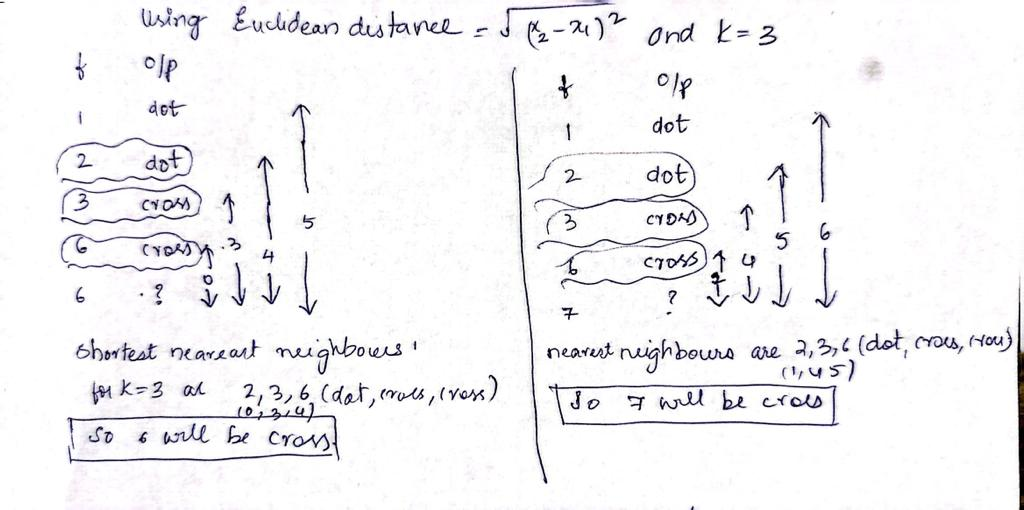 Using Euclidean distance = √(x₂-x₁)² and k=3
f o/p
1 dot
2 dot
3 cross
6 cross
6 ?
0 3 4 5
Shortest nearest neighbours
for k=3 are 2,3,6 (dot, cross, cross)
(0,3,4)
So 6 will be cross
f o/p
1 dot
2 dot
3 cross
6 cross
7 ?
1 4 5 6
nearest neighbours are 2,3,6 (dot, cross, cross)
(1,4 5)
So 7 will be cross